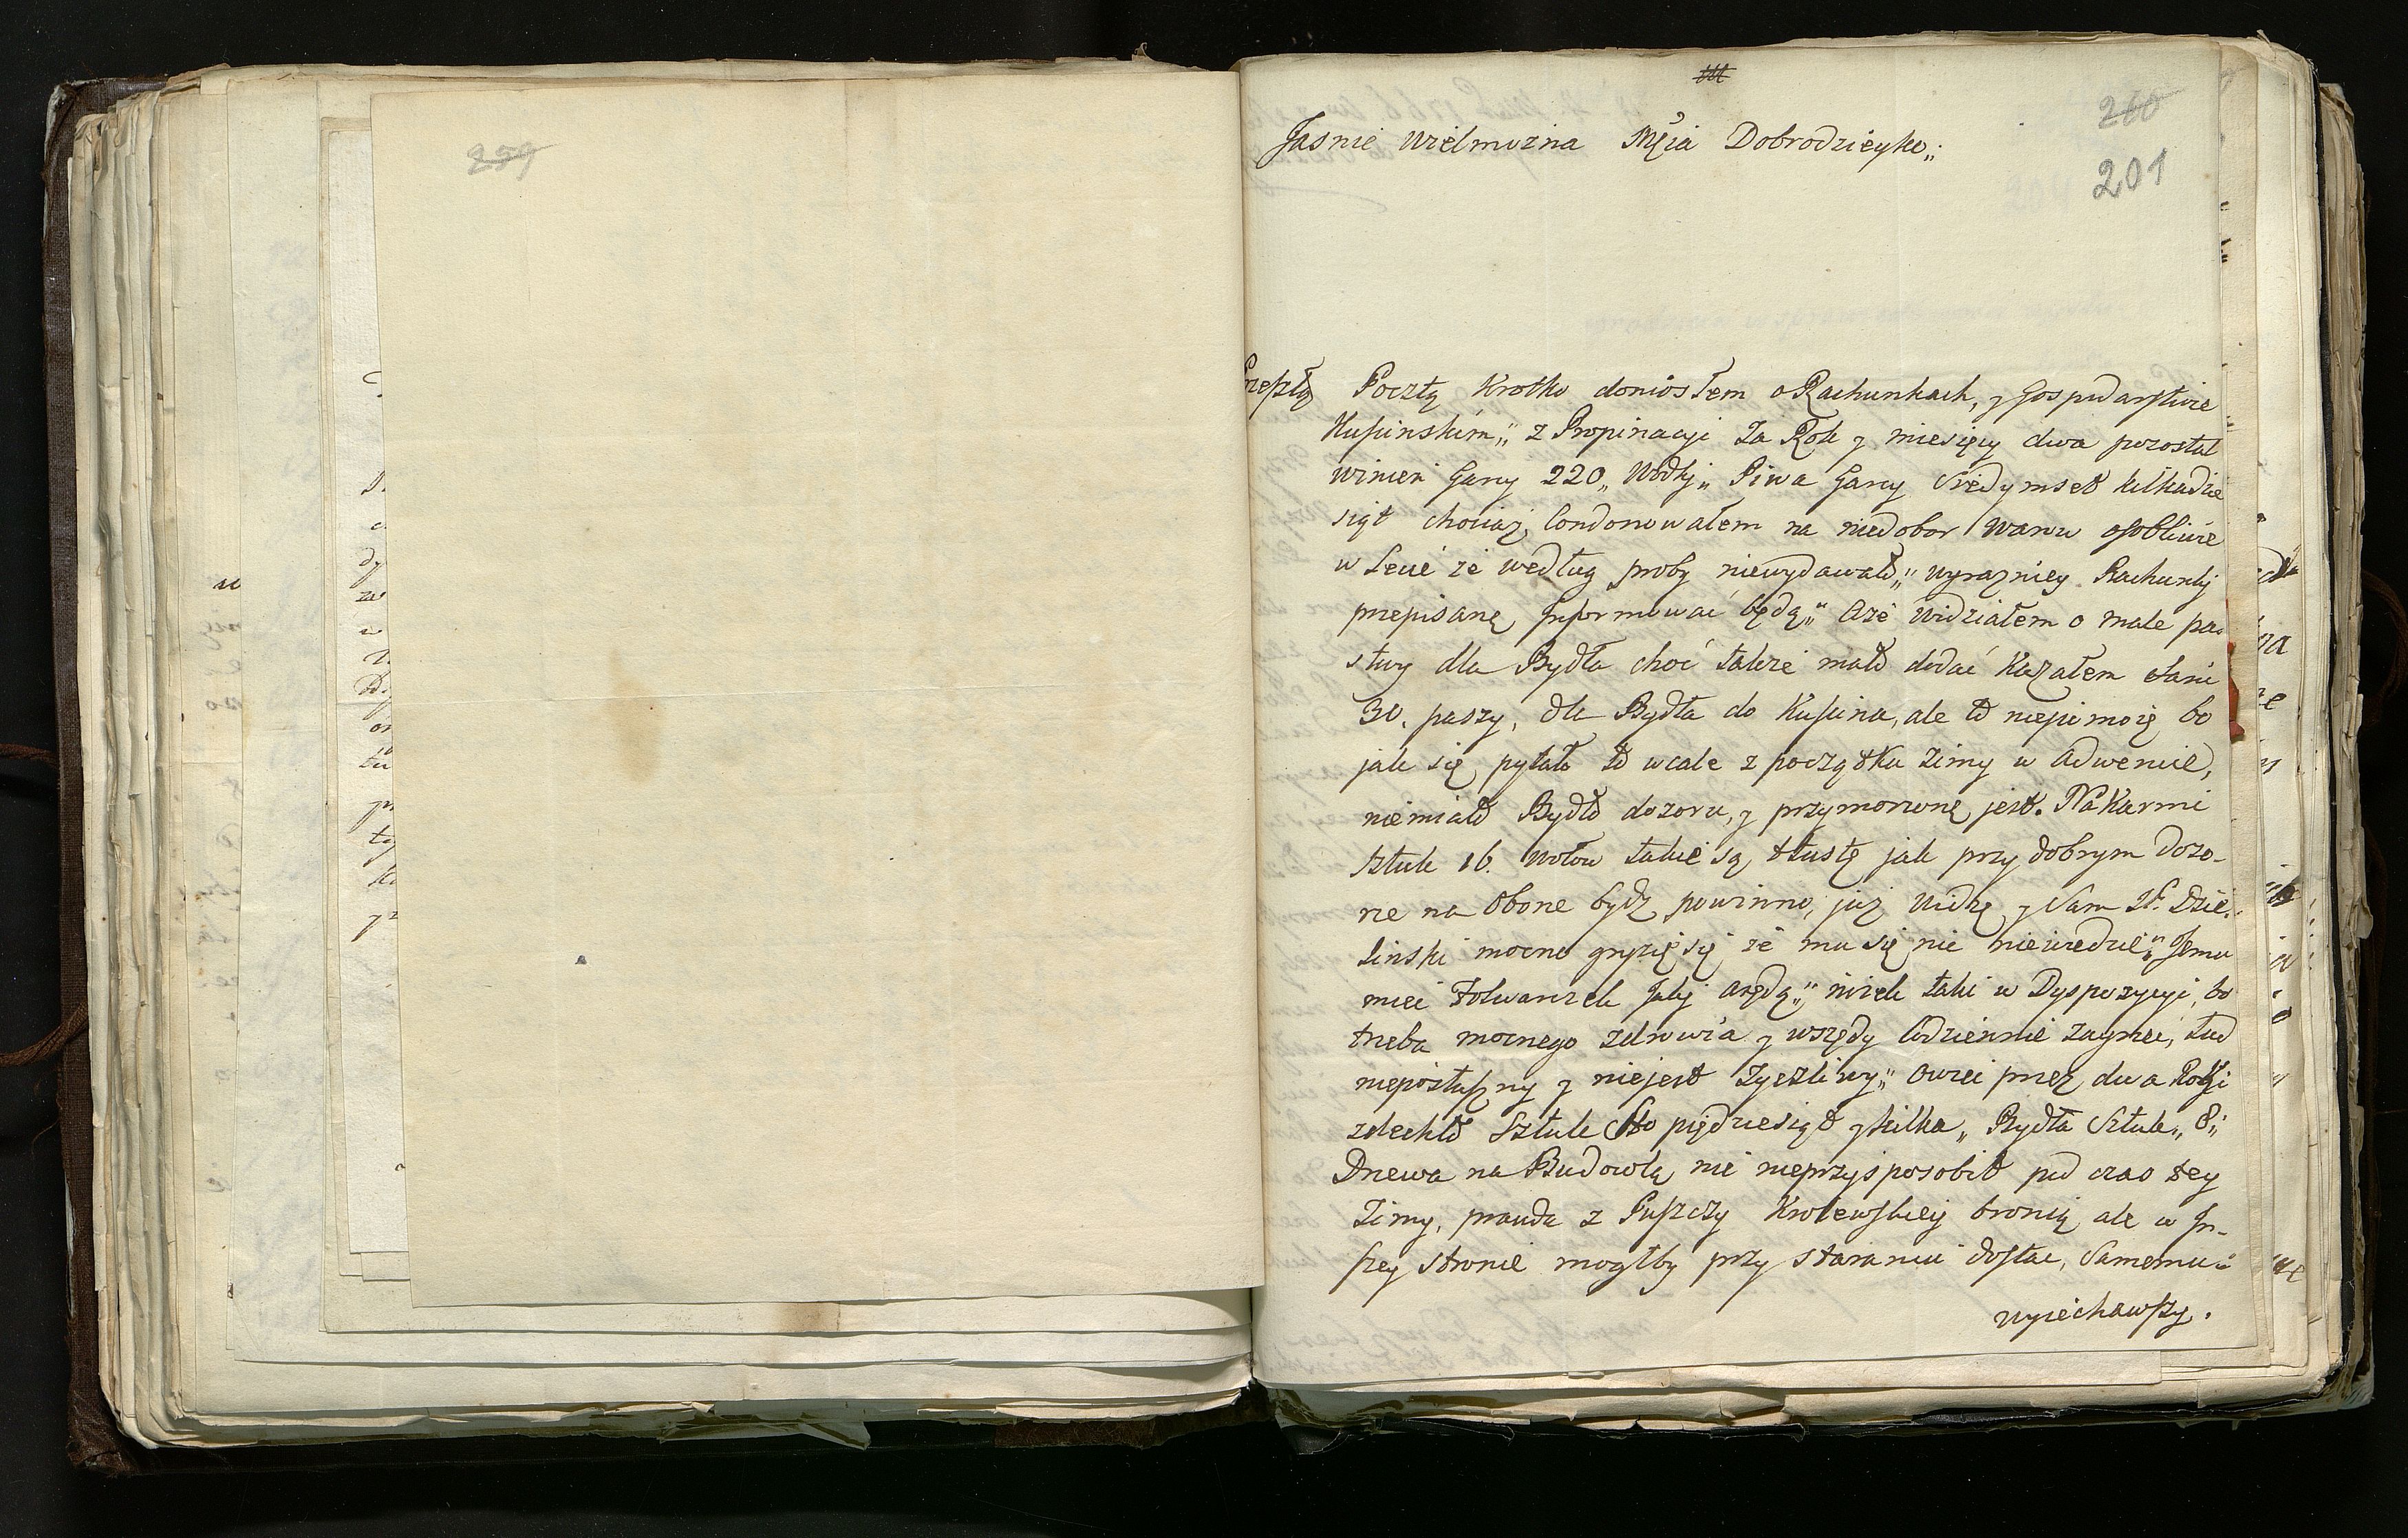 259
Jasnie Wielmozna Mśia Dobrodzieyko„
260
201
Przeszłą Pocztą Krotko doniosłem o Rachunkach, y Gospodarstwie
Kupinskim„ z Propinacyi za Rok y miesięcy dwa pozostał
winien Garcy 220„ Wodki„ Piwa Garcy Siedymset kilkadzie
siąt chociaz Condonowałem na niedobor Waru osobliwie
w Lecie ze według proby niewydawało„ wyrazniey Rachunki
przepisane Informować będą„ Aze widziałem o małe pa„
stwy dla Bydła choć takze mało dodać Kazałem stani
30. paszy, dla Bydła do Kupina, ale to niepomoże bo
jak się pytało to wcale z początku Zimy w Adwencie,
niemiało Bydło dozoru, y przymorzone jest. Na Karmi
sztuk 16. wołow takie są tłuste jak przy dobrym dozo-
rze na Oborze bydz powinno, juz widzę y Sam JP. Dzie„
linski mocno gryzie się ze mu się nie niewiedzie„ Jemu
mieć Folwarczek Jaki arędą„ nizeli taki w Dyspozycyi, bo
trzeba mocnego zdrowia y wszędy Codziennie zayrzeć, Lud
nieposłuszny y niejest zyczliwy„ Owiec przez dwa Roki
zdechło Sztuk Sto piędziesiąt y kilka„ Bydła Sztuk„ 8„
Drzewa na Budowlą nic nieprzysposobił pod czas tey
Zimy, prawda z Puszczy Krolewskiey bronią ale w In-
szey stronie mogłby przy staraniu dostać, Samemu
wyiechawszy.